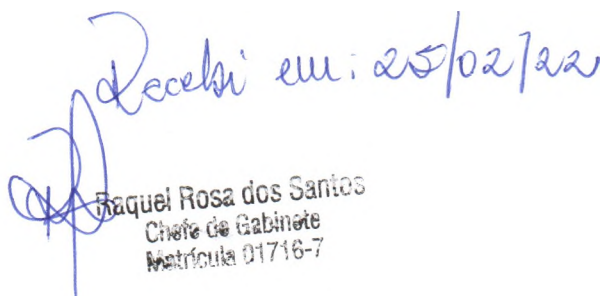 Recebi em: 25/02/22
Raquel Rosa dos Santos
Chefe de Gabinete
Matrícula 01716-7